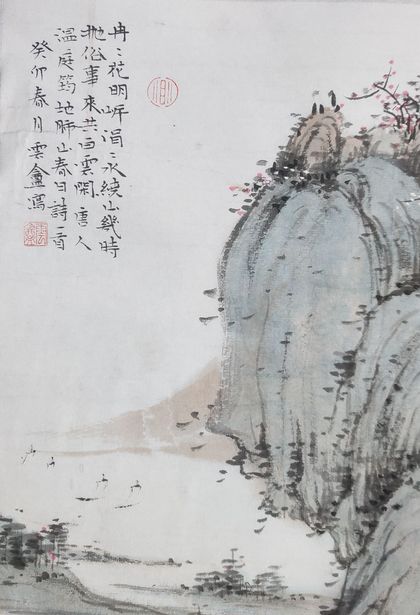 冉〻花明岸涓〻水繞山幾時
拋俗事來共白雲閑唐人
溫庭筠地肺山春日詩一首
癸卯春月雲盦寫